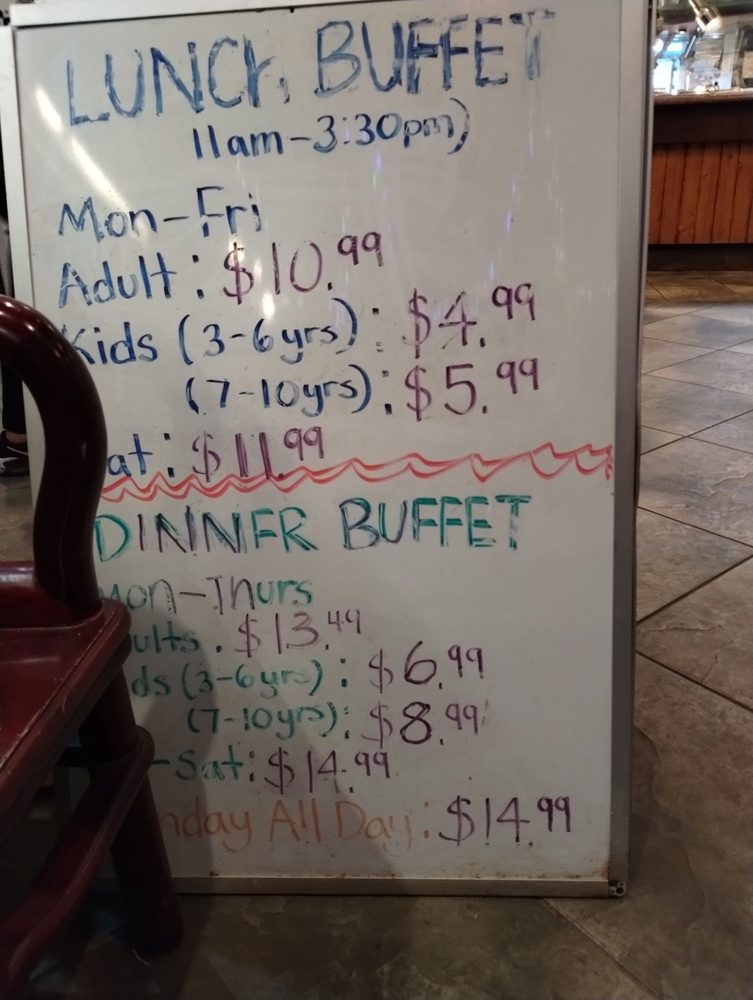 LUNCH BUFFET
11am-3:30pm)
Mon-Fri
Adult: $10.99
Kids (3-6yrs): $4.99
(7-10yrs): $5.99
at: $11.99
DINNER BUFFET
Mon-Thurs
ults. $13.49
ds (3-6yrs): $6.99
(7-10yrs): $8.99
-Sat: $14.99
nday All Day: $14.99